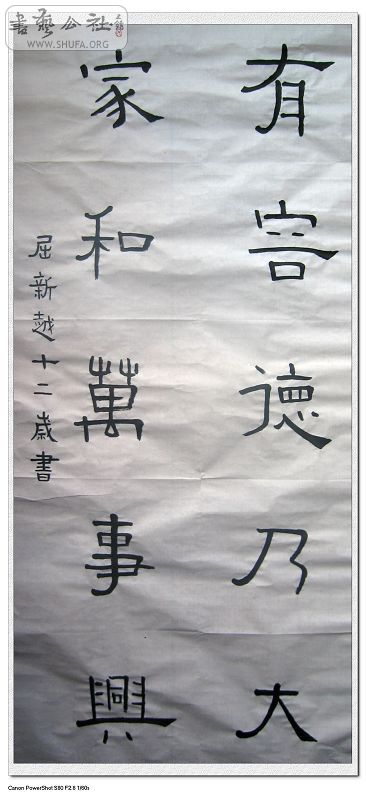 書藝公社
WWW.SHUFA.ORG
有容德乃大
家和萬事興
屈新越十二歲書
Canon PowerShot S80 F2.8 1/60s